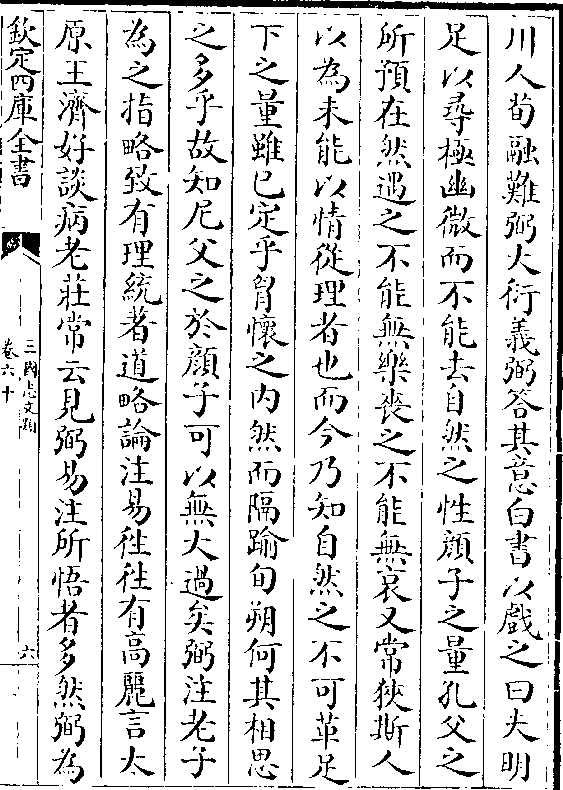 川人荀融難弼大衍義弼答其意白書以戲之曰夫明
足以尋極幽微而不能去自然之性顔子之量孔父之
所預在然遇之不能無樂喪之不能無哀又常狹斯人
以為未能以情從理者也而今乃知自然之不可革足
下之量雖已定乎胷懷之内然而隔踰旬朔何其相思
之多乎故知尼父之於顔子可以無大過矣弼注老子
為之指略致有理統著道略論注易徃徃有高麗言太
原王濟好談病老莊常云見弼易注所悟者多然弼為
欽定四庫全書
三國志文類
卷六十
六